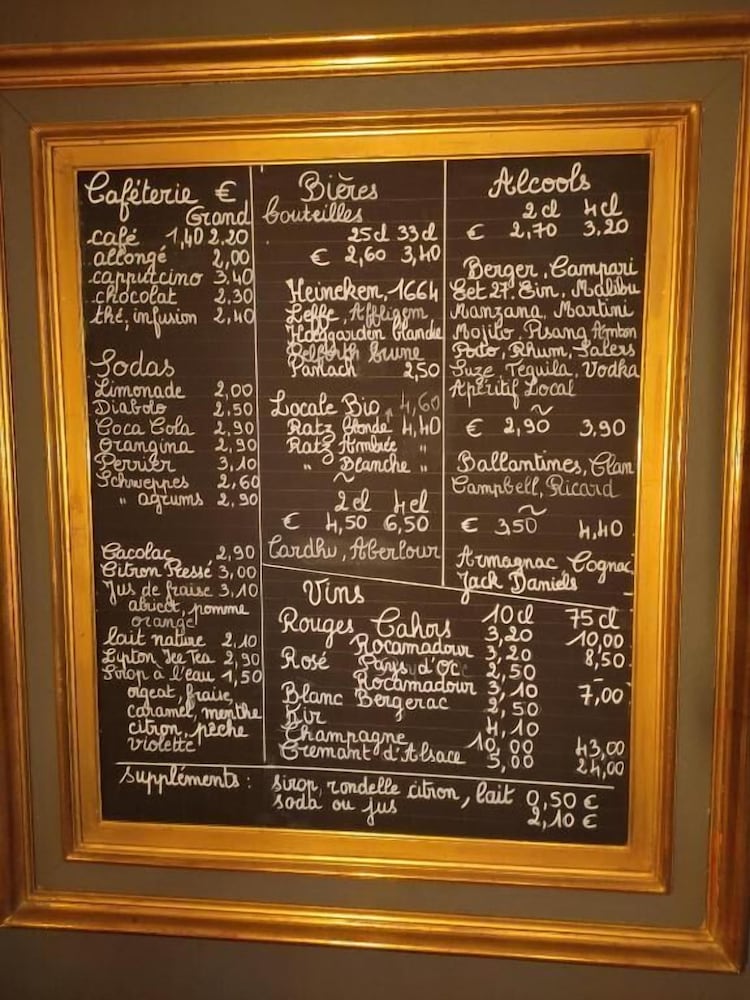 Caféterie €
Grand
café 1,40 2.20
allongé 2,00
cappuccino 3,40
chocolat 2,30
thé, infusion 2,40
Sodas
Limonade 2,00
Diabolo 2,50
Coca Cola 2,90
Orangina 2,90
Perrier 3,10
Schweppes 2,60
" agrums 2,90
Cacolac 2,90
Citron Pressé 3,00
Jus de fraise 3,10
abricot, pomme
orange
lait nature 2,10
Lipton Ice Tea 2,90
Sirop à l'eau 1,50
orgeat, fraise,
caramel, menthe
citron, pêche
violette
Bières
bouteilles
25cl 33cl
€ 2,60 3,40
Heineken, 1664
Leffe, Affligem
Hoegaarden blanche
Pelforth brune
Panach 2,50
Locale Bio 4,60
Ratz blonde 4,40
Ratz Ambrée "
" Blanche "
~
2cl 4cl
€ 4,50 6,50
Cardhu, Aberlour
Alcools
2cl 4cl
€ 2,70 3.20
Berger, Campari
Get 27. Gin, Malibu
Manzana, Martini
Mojito, Pisang
Poto, Rhum, Salers
Suze, Tequila, Vodka
Apéritif Local
~
€ 2,90 3,90
Ballantines, Clan
Campbell, Ricard
~
€ 3,50 4,40
Armagnac, Cognac
Jack Daniels
Vins
10cl 75cl
Rouges Cahors 3,20 10,00
Rocamadour 3,20 8,50
Rosé Pays d'Oc 2,50
Rocamadour 3,10 7,00
Blanc Bergerac 2,50
Kir 4,10
Champagne 10,00 43,00
Crémant d'Alsace 5,00 24,00
Suppléments : sirop, rondelle citron, lait 0,50 €
soda ou jus 2,10 €